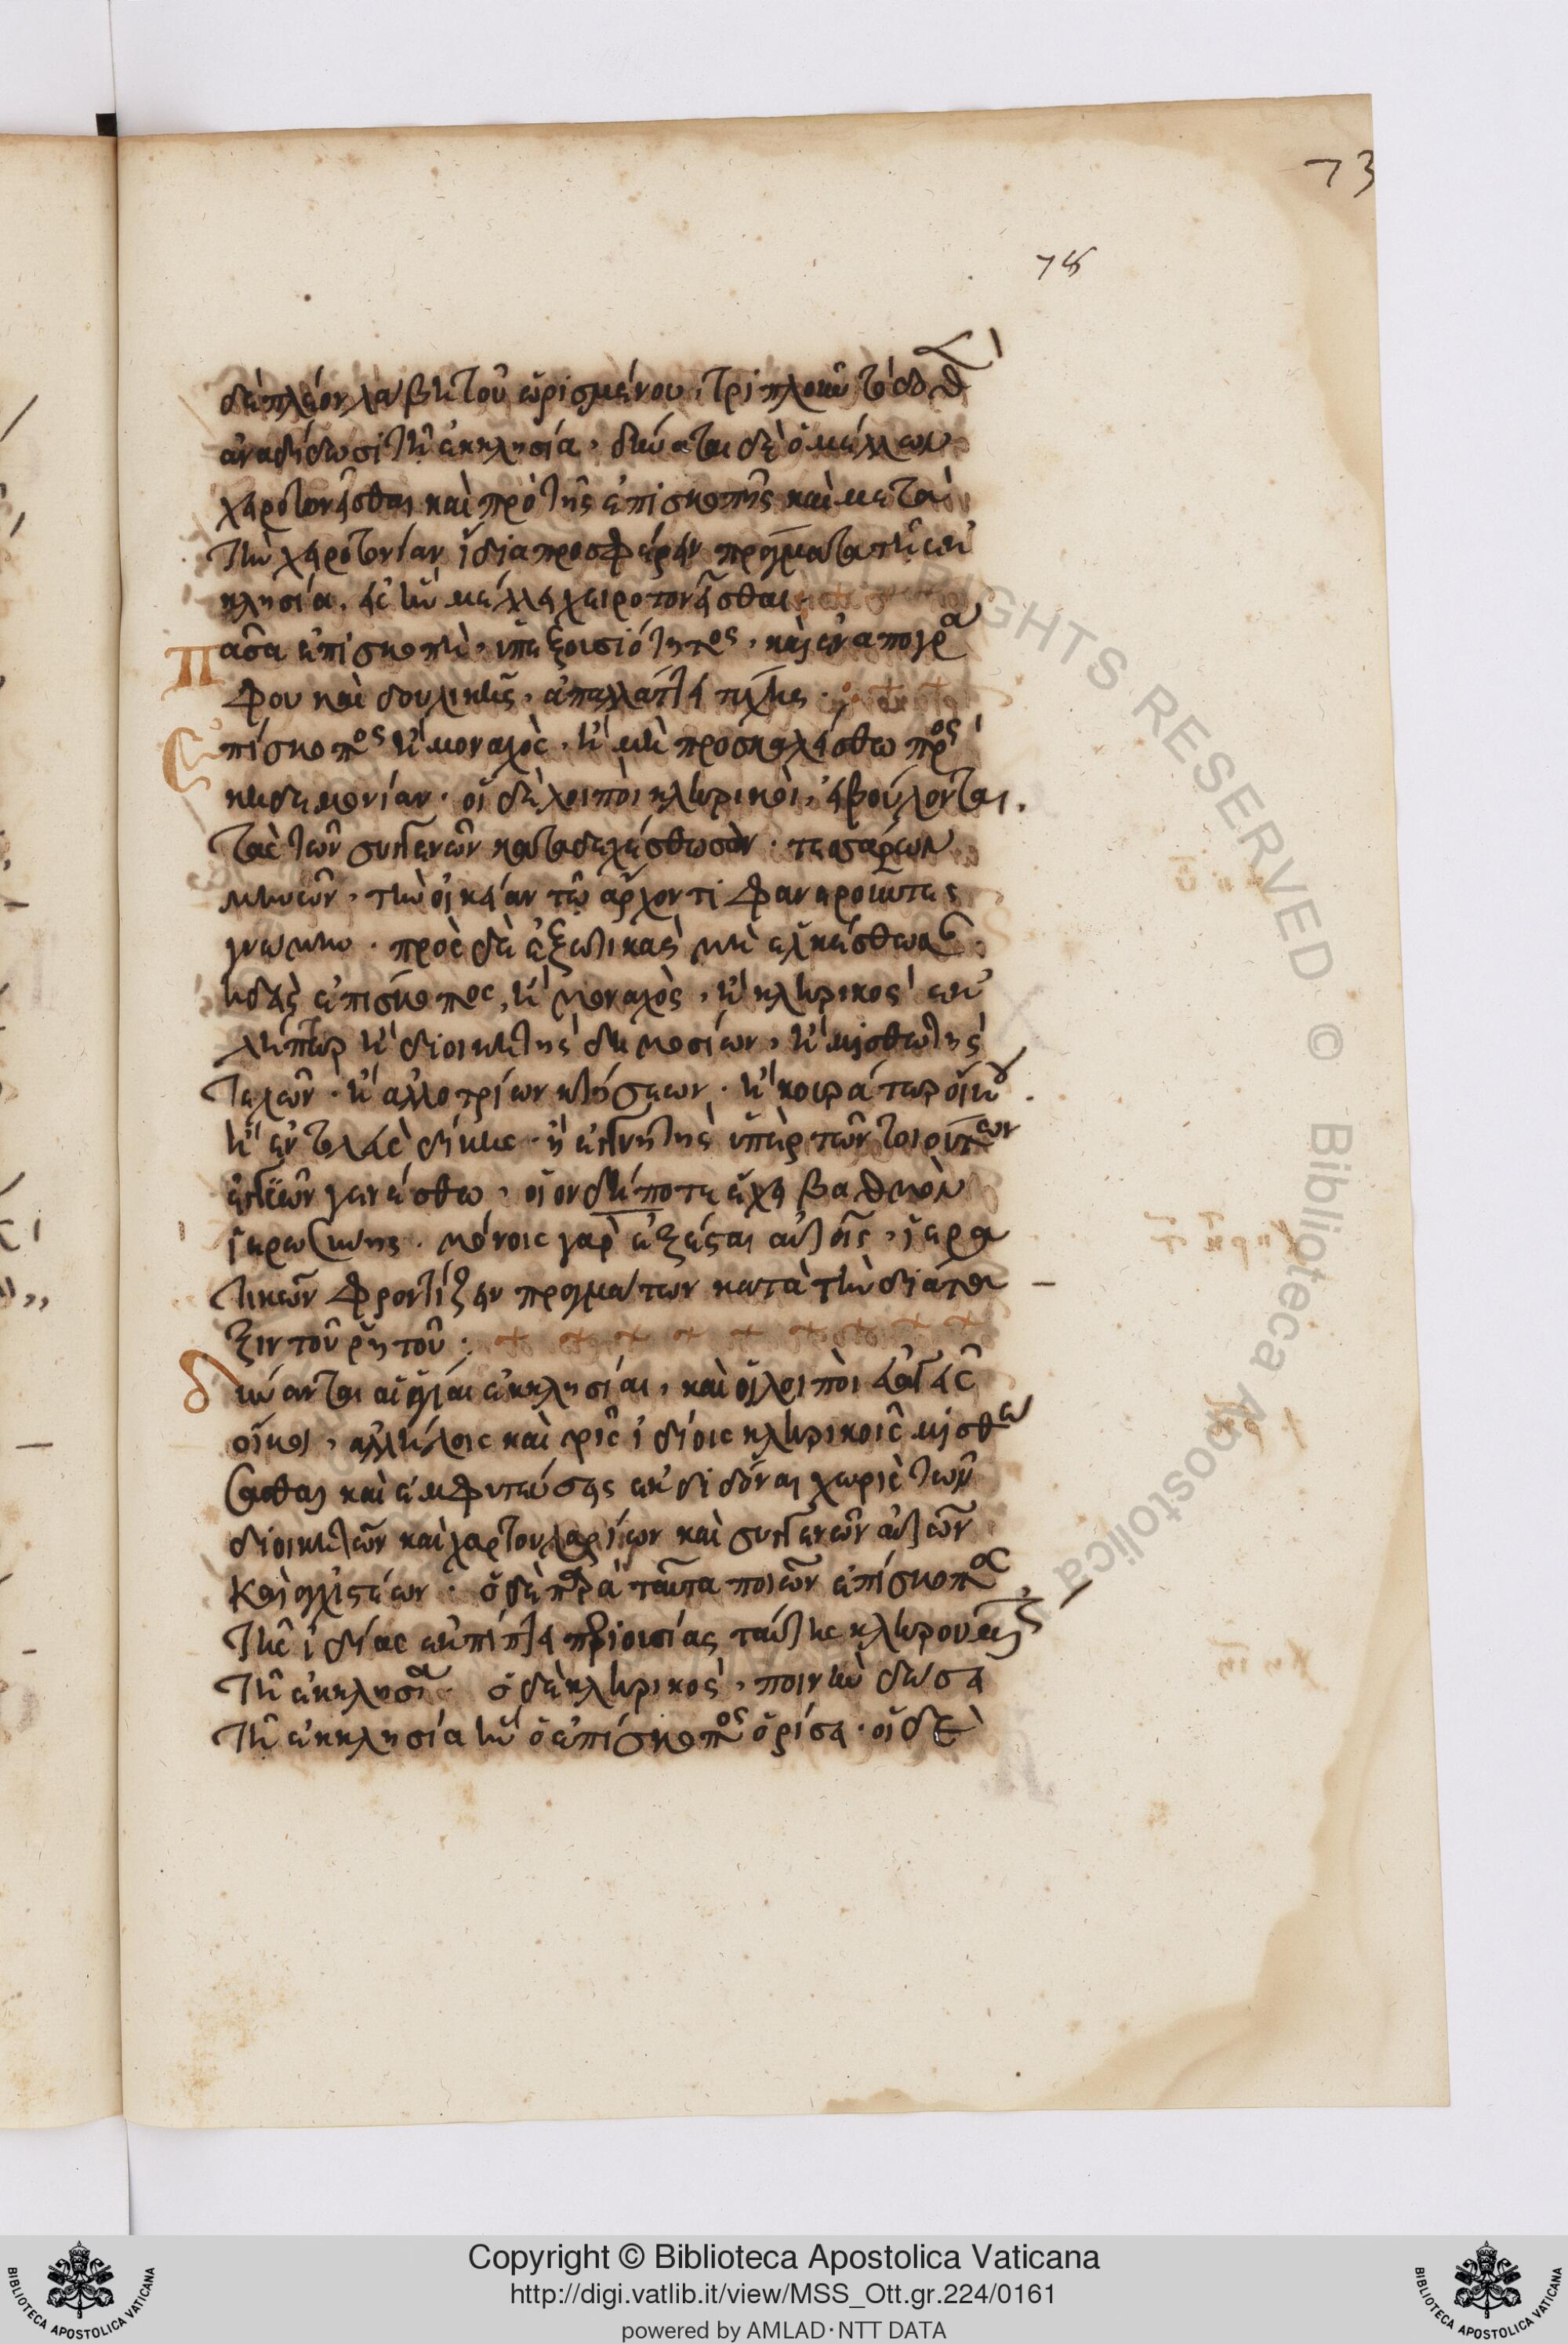 73
78
δὲ πλέον λάβη τοῦ ὡρισμένου, τριπλοῦν τὸ δοθὲν
ἀναδίδωσι τῆ ἐκκλησία. δύναται δὲ ὁ μέλλων
χειροτονεῖσθαι καὶ πρὸ τῆς ἐπισκοπῆς καὶ μετὰ
τὴν χειροτονίαν ἴδια προσφέρειν πράγματα τῆ ἐκ
κλησία, εἰς ἣν μέλλει χειροτονεῖσθαι
Πᾶσα ἐπισκοπὴ, ὑπεξουσιότητος, καὶ ἐναπογρά
φου καὶ δουλικῆς, ἀπαλλάττει τύχης.
Ἐπίσκοπος ἢ μοναχὸς, ἢ μὴ προσκαλείσθω πρὸς
κηδεμονίαν. οἱ δὲ λοιποὶ κληρικοὶ, εἰ βούλονται,
τὰς τῶν συγγενῶν καταδεχέσθωσαν. τεσσάρων
μηνῶν, τὴν οἰκείαν τῷ ἄρχοντι φανεροῦντες
γνώμην. πρὸς δὲ ἐξωτικὰς μὴ ἑλκέσθωσαν.
μηδεὶς ἐπίσκοπος, ἢ μοναχὸς, ἢ κληρικὸς ἐκ
λήπτωρ ἢ διοικητὴς δημοσίων, ἢ μισθωτὴς
τελῶν. ἢ ἀλλοτρίων κτήσεων. ἢ κουράτωρ οἴκου.
ἢ ἐντολεὺς δίκης. ἢ ἐγγυητὴς ὑπὲρ τῶν τοιούτων
αἰτιῶν γενέσθω, οἱονδήποτε ἔχει βαθμὸν
ἱερωσύνης. μόνοις γὰρ ἐξέσται αὐτοῖς, ἱερα
τικῶν φροντίζειν πραγμάτων κατὰ τὴν διάτα
ξιν τοῦ ῥητοῦ:
Δύνανται αἱ ἅγίαι ἐκκλησίαι, καὶ οἱ λοιποὶ εὐαγεῖς
οἶκοι, ἀλλήλοις καὶ τοῖς ἰδίοις κληρικοῖς μισθώ
σασθαι καὶ ἐμφυτεύσεις ἐκδιδόναι χωρὶς τῶν
διοικητῶν καὶ χαρτουλαρίων καὶ συγγενῶν αὐτῶν
καὶ ἀγχιστέων. ὁ δὲ παρὰ ταῦτα ποιῶν ἐπίσκοπος
τῆς ἰδίας ἐκπίπτει περιουσίας ταύτης κληρουμένης
τῆ ἐκκλησία. ὁ δὲ κληρικὸς, ποινὴν δώσει
τῆ ἐκκλησία ἣν ὁ ἐπίσκοπος ὁρίσει. οἱ δὲ
ALL RIGHTS RESERVED © Biblioteca Apostolica Vaticana
Copyright © Biblioteca Apostolica Vaticana
http://digi.vatlib.it/view/MSS_Ott.gr.224/0161
powered by AMLAD·NTT DATA
BIBLIOTECA APOSTOLICA VATICANA
BIBLIOTECA APOSTOLICA VATICANA